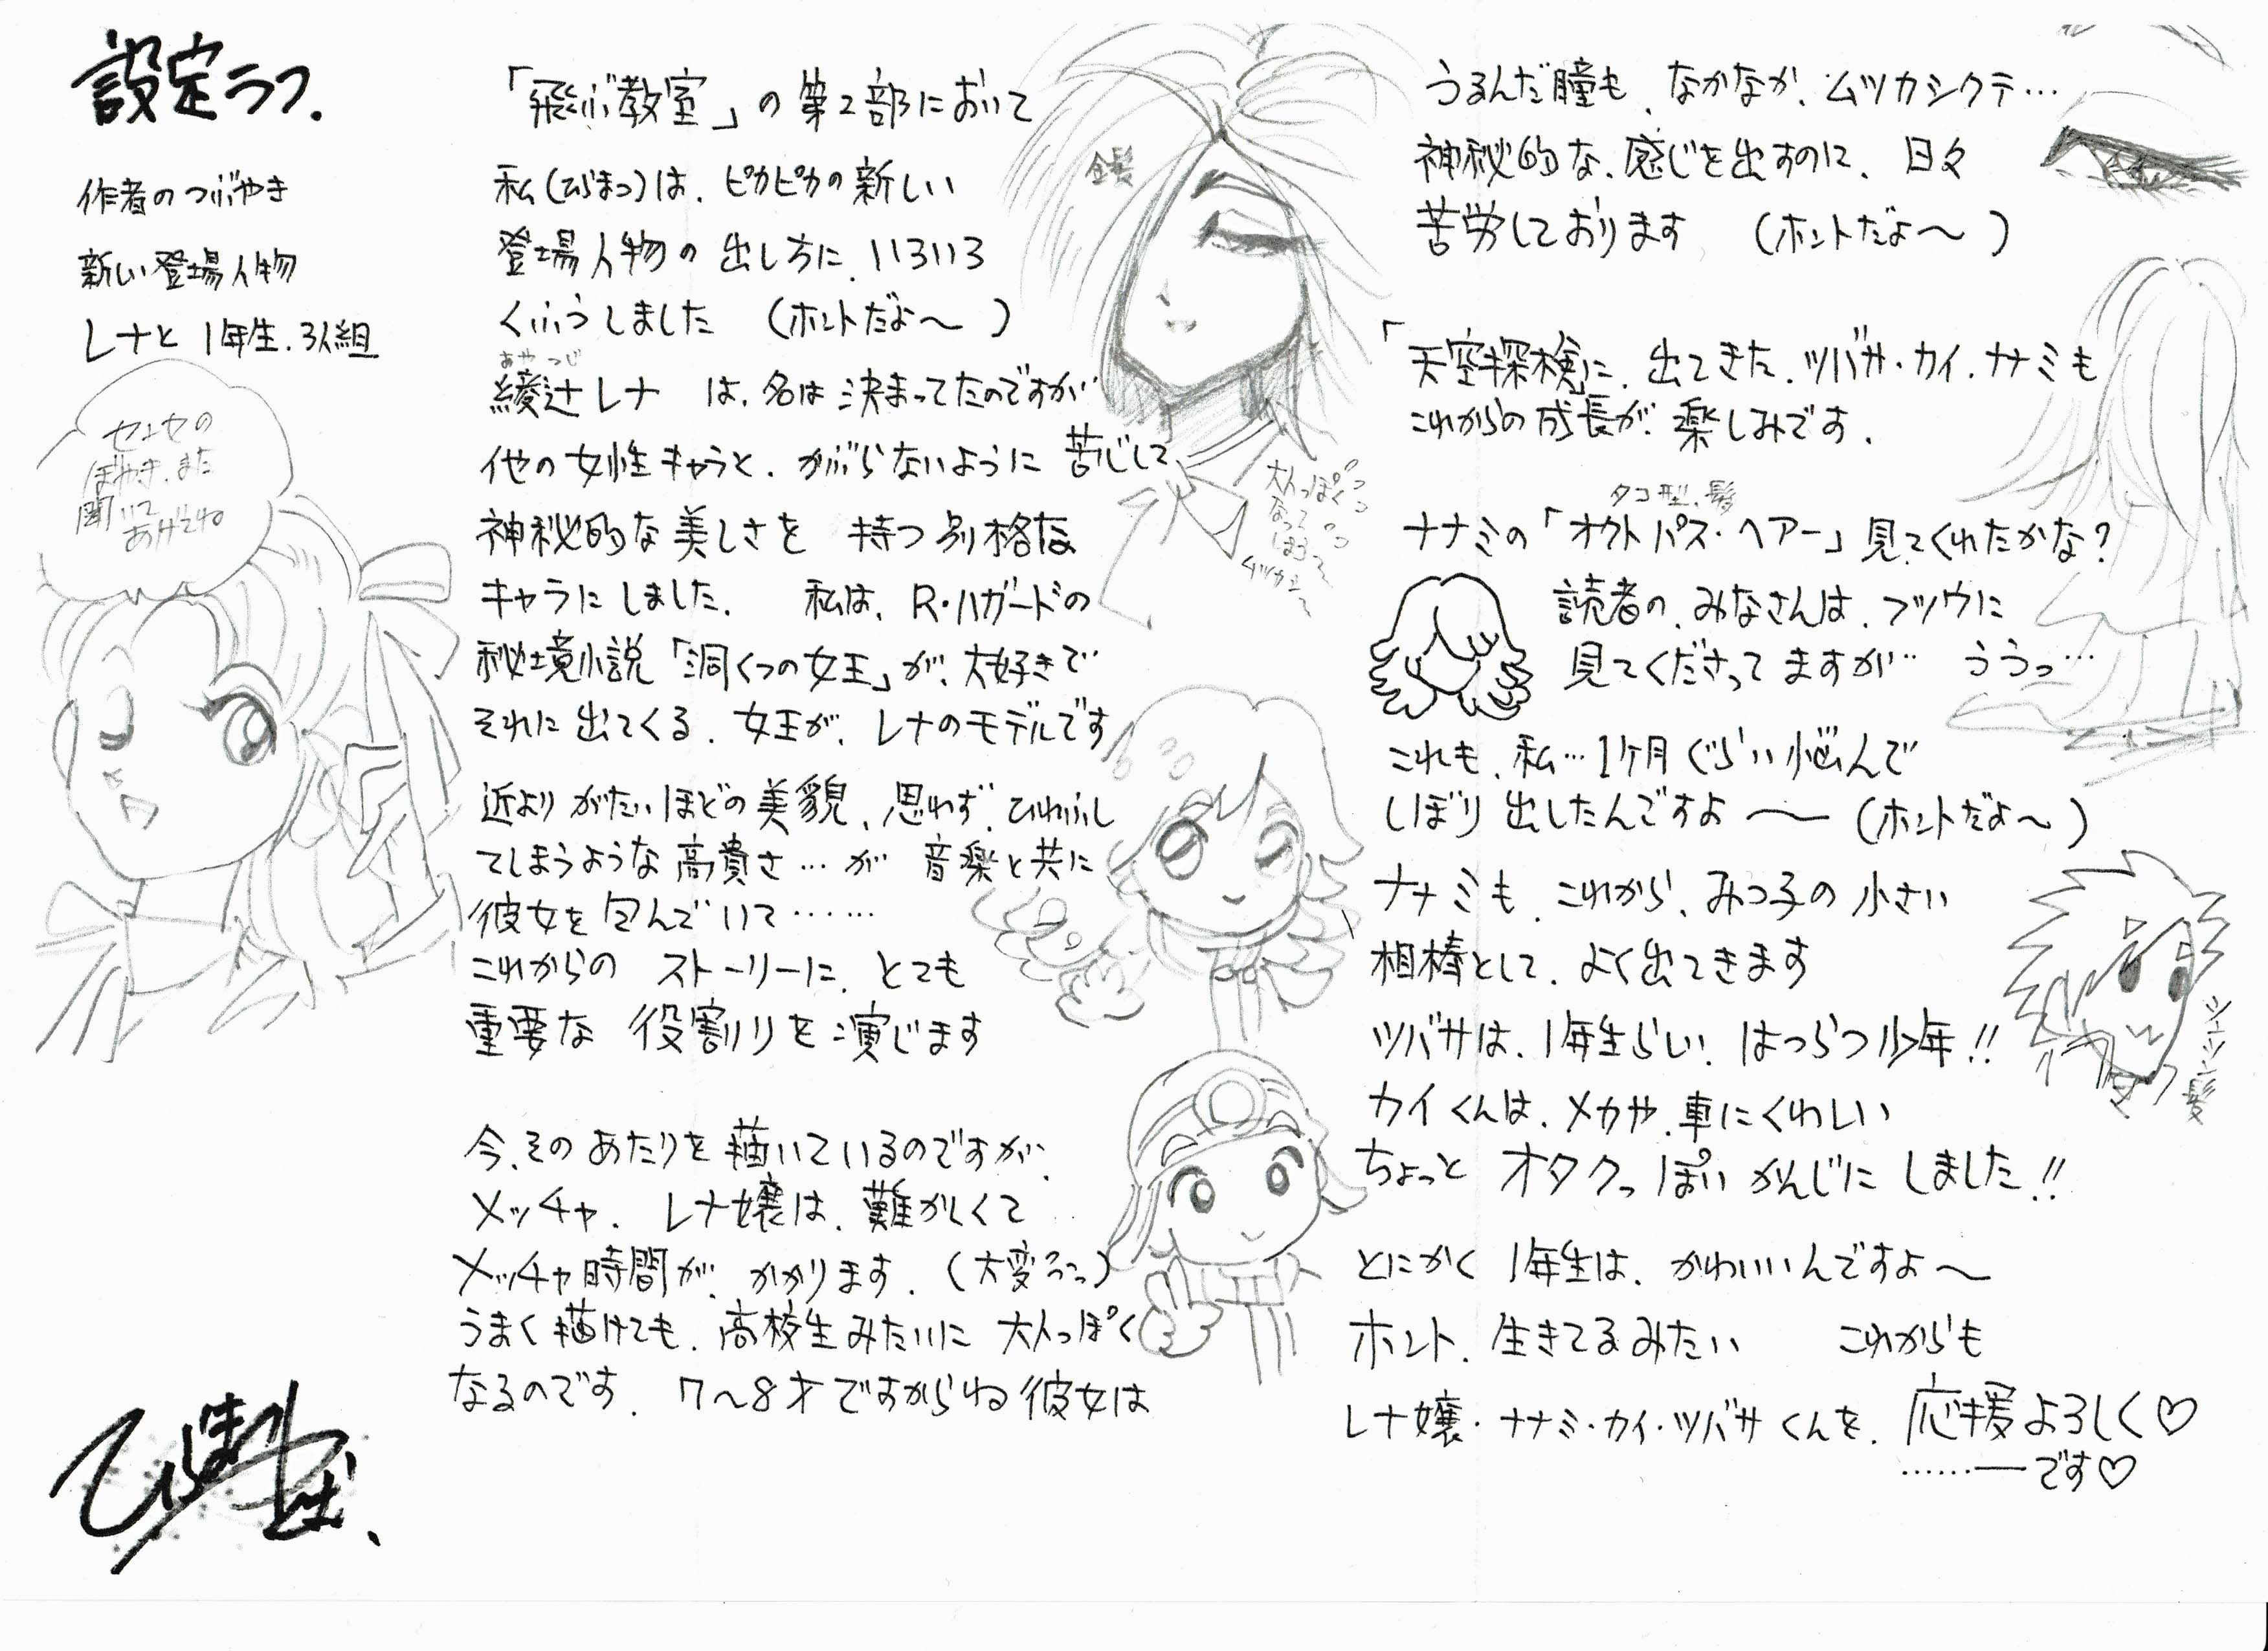 設定ラフ.
作者のつぶやき
新しい登場人物
レナと1年生.3人組
センセの
ぼやき.また
聞いて
あげてね
「飛ぶ教室」の第2部において
私(ひらまつ)は、ピカピカの新しい
登場人物の出し方に、いろいろ
くふうしました (ホントだよ〜)
あやつじ
綾辻レナ は、名は決まってたのですが
他の女性キャラと、かぶらないように苦心して、
神秘的な美しさを 持つ別格な
キャラにしました. 私は、R・ハガードの
秘境小説「洞くつの女王」が、大好きで
それに出てくる、女王が、レナのモデルです
近よりがたいほどの美貌、思わず、ひれふし
てしまうような高貴さ…が 音楽と共に
彼女を包んでいて……
これからの ストーリーに、とても
重要な 役割りを演じます
今、そのあたりを描いているのですが、
メッチャ、レナ嬢は、難かしくて
メッチャ時間が、かかります.(大変ろっっ)
うまく描けても、高校生みたいに 大人っぽく
なるのです. 7〜8才ですからね彼女は
金髪
大人っぽく
なって
しまう〜
ムツカシ〜
うるんだ瞳も、なかなか、ムツカシクテ…
神秘的な、感じを出すのに、日々
苦労しております (ホントだよ〜)
「天空探検」に、出てきた、ツバサ・カイ、ナナミも
これからの成長が、楽しみです.
タコ型、髪
ナナミの「オクトパス・ヘアー」見てくれたかな?
読者の、みなさんは、フツウに
見てくださってますが… ううっ…
これも、私…1ケ月ぐらい悩んで
しぼり出したんですよ〜(ホントだよ〜)
ナナミも、これから、みつ子の小さい
相棒として、よく出てきます
ツバサは、1年生らしい、はつらつ少年!!
カイくんは、メカや、車にくわしい
ちょっと オタクっぽいかんじにしました!!
ツンツン髪
とにかく 1年生は、かわいいんですよ〜
ホント、生きてるみたい これからも
レナ嬢・ナナミ・カイ・ツバサくんを、応援よろしく♡
……ーです♡
ひらまつ